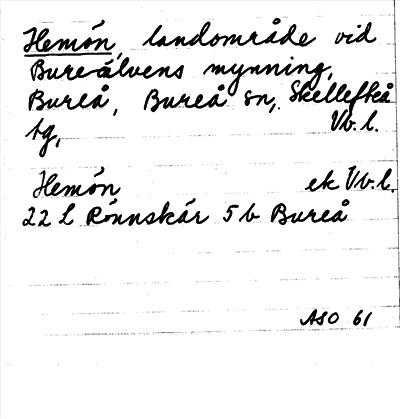 Hemón, landområde vid
Bure-älvens mynning,
Bureå, Bureå sn, Skellefteå
tg, Vb. l.
Hemón ek Vb. l.
22 L Rönnskär 5 b Bureå
ASO 61